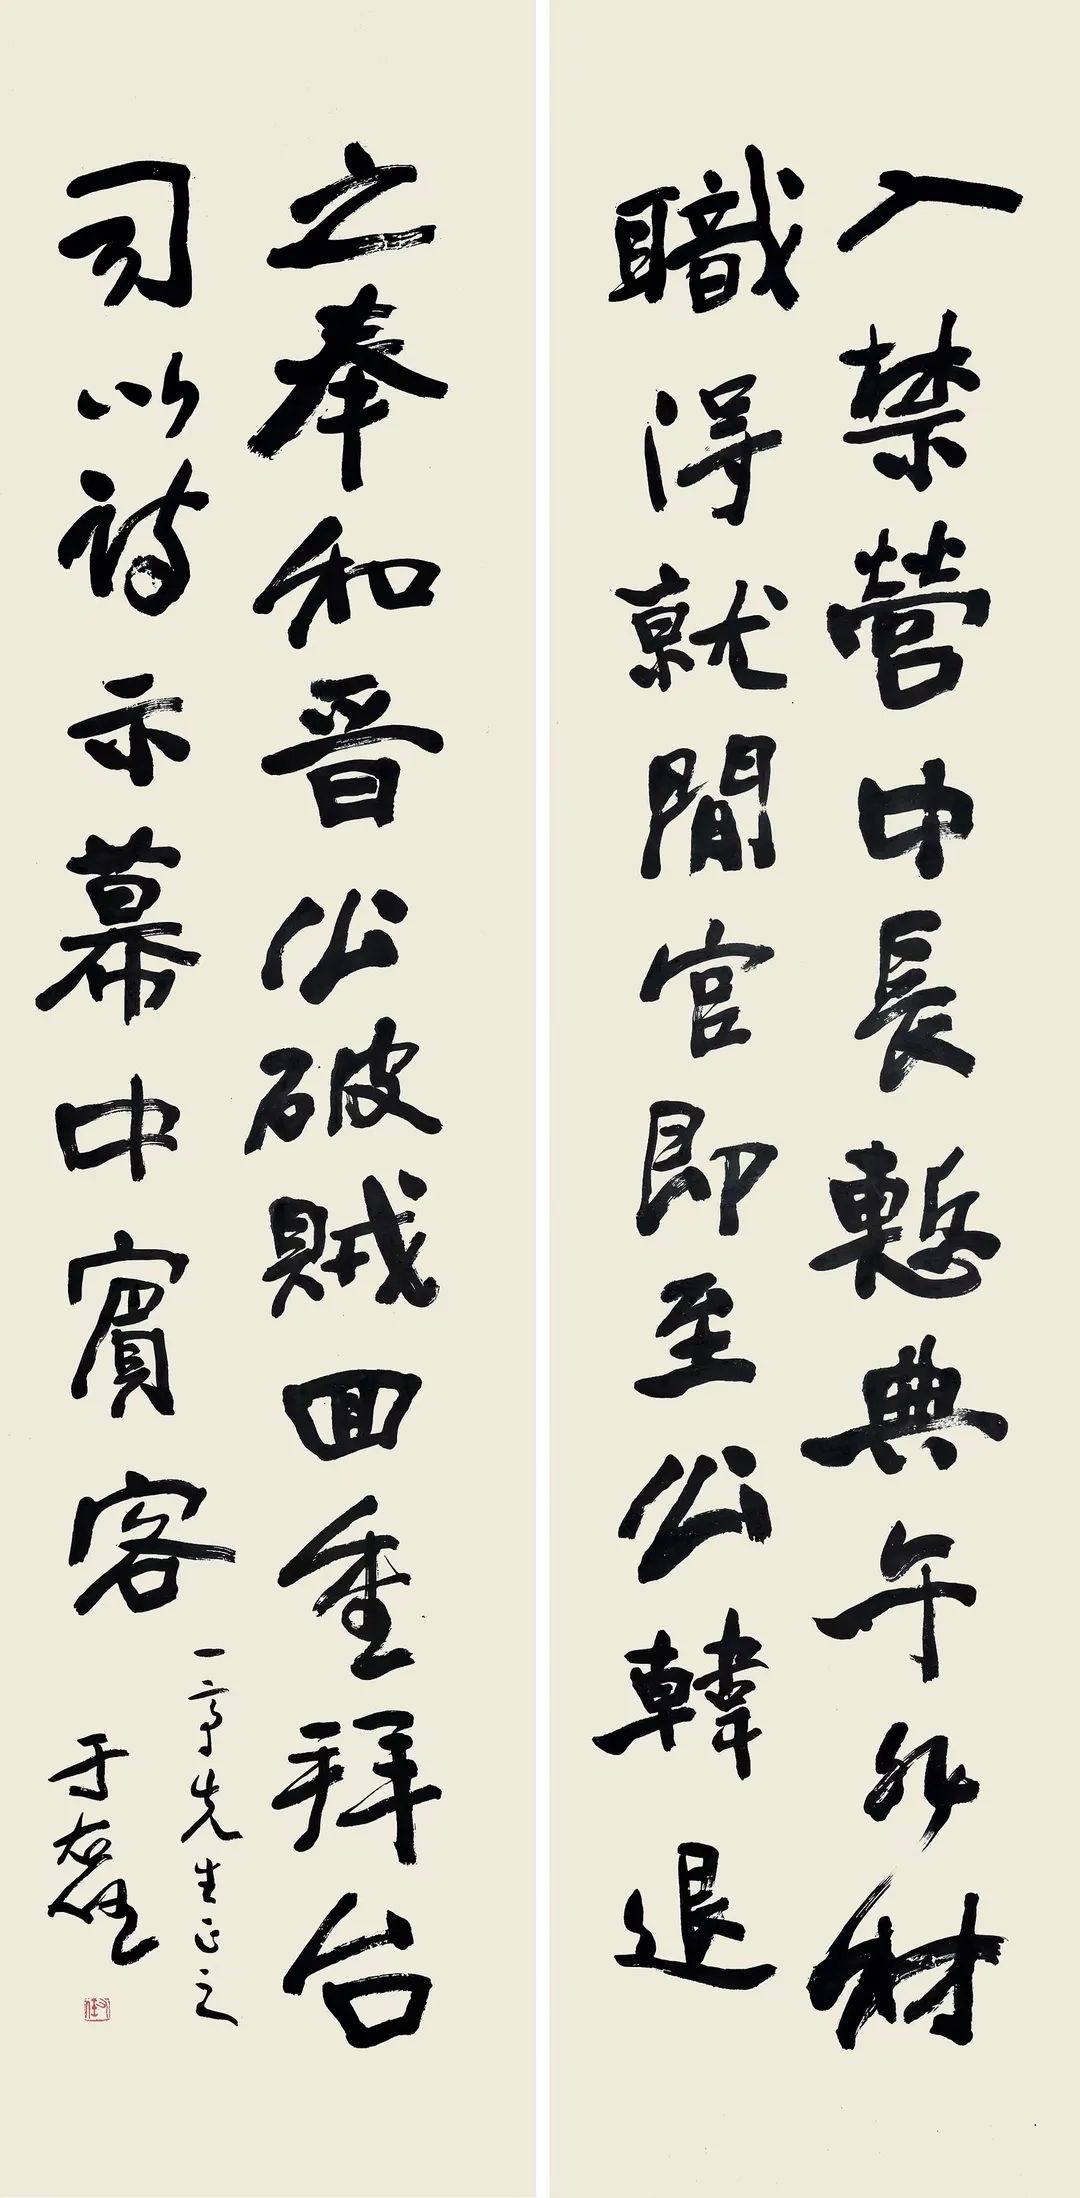 入禁營中長慙典午非材
職得就閒官即至公韓退
之奉和晋公破賊回重拜台
司以詩示幕中賓客
一亭先生正之
于右任
右任